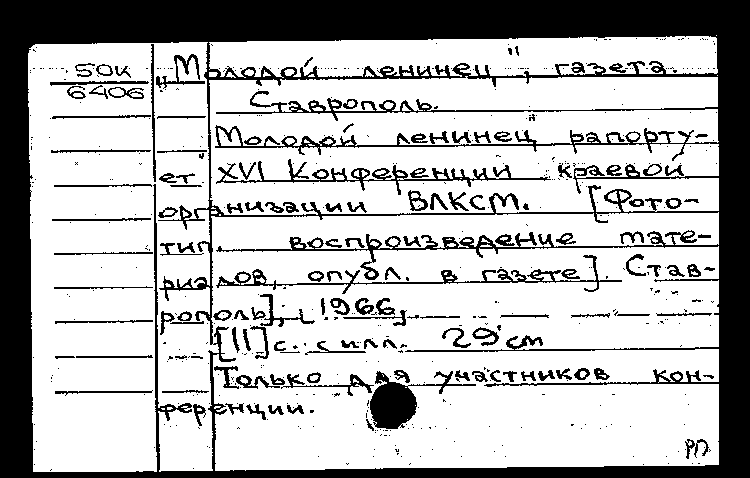 50К
6406
„Молодой ленинец", газета.
Ставрополь.
Молодой ленинец" рапорту-
ет" XVI Конференции краевой
организации ВЛКСМ. [Фото-
тип. воспроизведение мате-
риалов, опубл. в газете]. Став-
рополь], [1966]
[11] с. с илл. 29 см
Только для участников кон-
ференции.
РП